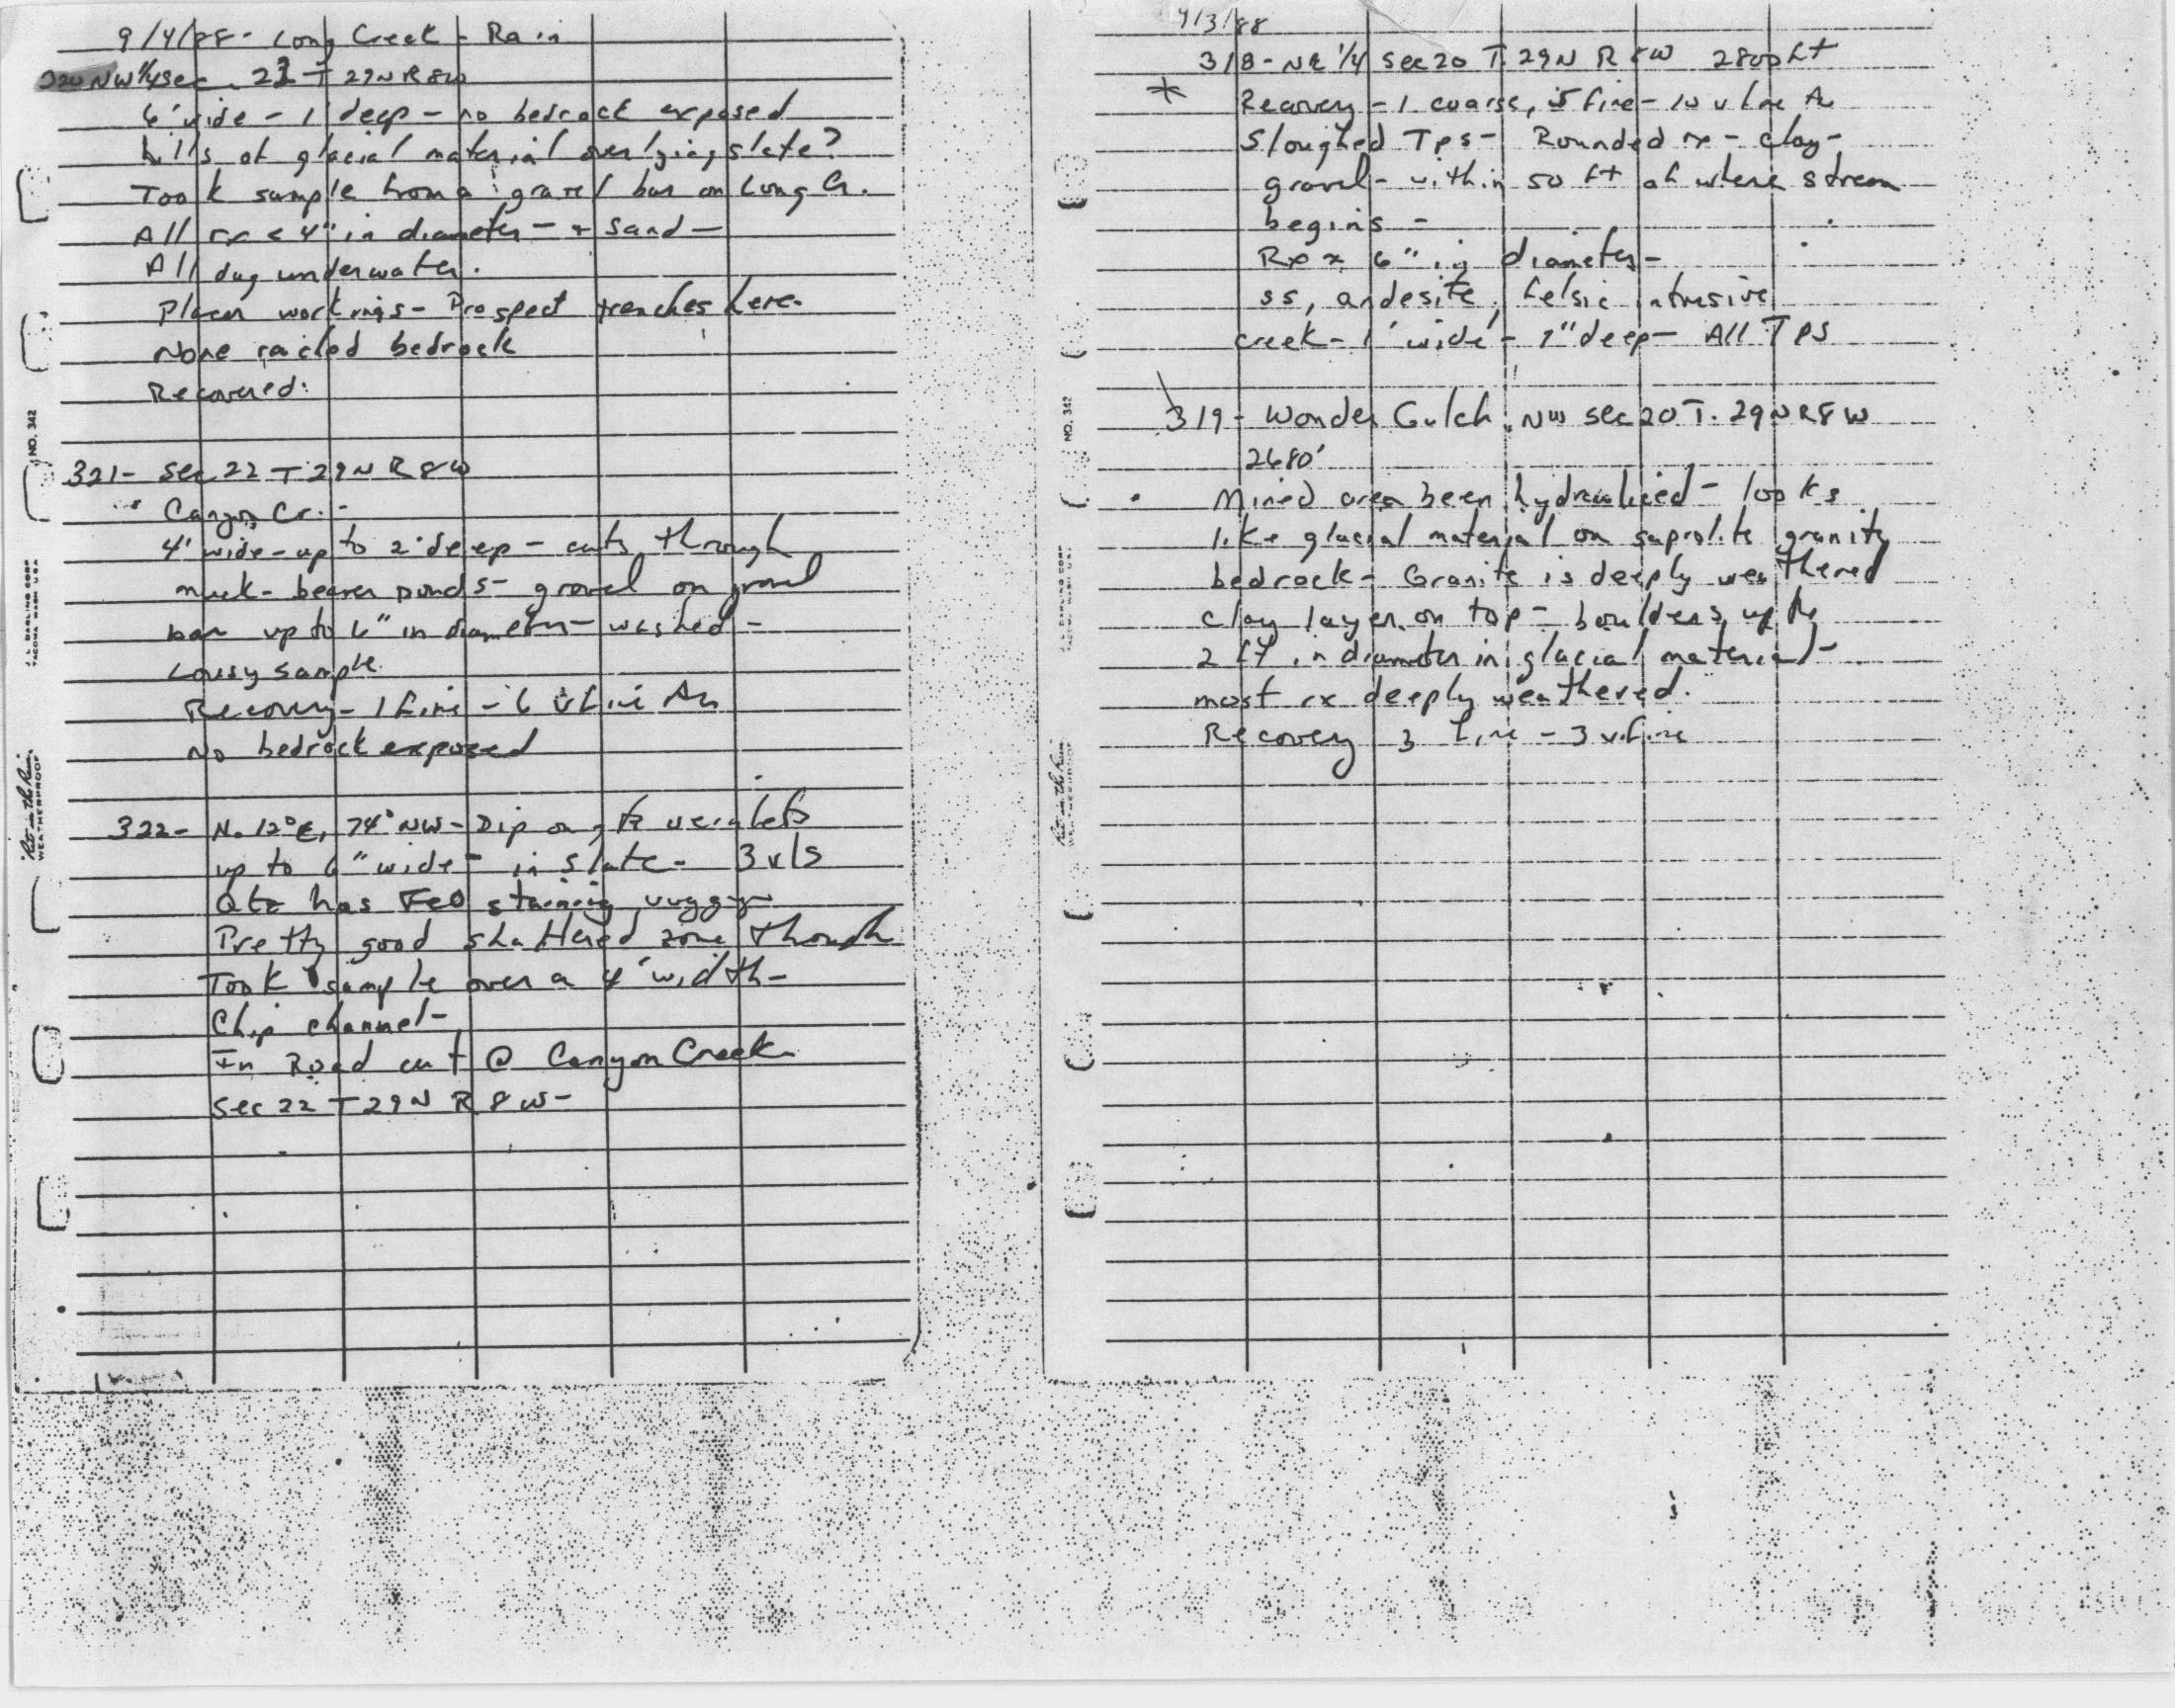 9/4/88 - Long Creek - Rain
320 NW 1/4 Sec. T 29N R 8W
6' wide - 1' deep - no bedrock exposed
hills of glacial material overlying slate?
Took sample from a gravel bar on Long Cr.
All rx < 4" in diameter - + sand -
All dug underwater.
Placer workings - Prospect trenches here.
None reached bedrock
Recovered:
321- Sec 22 T 29N R 8W
Canyon Cr. -
4' wide - up to 2' deep - cuts through
muck - beaver ponds - gravel on gravel
bar up to 6" in diameter - washed -
Lousy sample
Recovery - 1 fine - 6 v fine Au
No bedrock exposed
322- N. 12° E, 74° NW - Dip on qtz veinlets
up to 6" wide - in slate - 3 vls
Qtz has FeO staining, vuggy
Pretty good shattered zone though
Took sample over a 4' width -
Chip channel -
In Road cut @ Canyon Creek
Sec 22 T 29N R 8W -
NO. 342
J. L. DARLING CORP.
TACOMA, WASH. USA
"Rite in the Rain"
WEATHERPROOF
9/3/88
318 - NE 1/4 Sec 20 T. 29N R 8W 2800 ft
* Recovery - 1 coarse, 5 fine - 10 v fine Au
Sloughed Tps - Rounded rx - clay -
gravel - within 50 ft of where stream
begins -
Rx 6" in diameter -
ss, andesite, felsic intrusive
creek - 1' wide - deep - All Tps
319 - Wonder Gulch NW Sec 20 T. 29N R 8W
2680'
Mined area been hydrauliced - looks
like glacial material on saprolite granite
bedrock - Granite is deeply weathered
clay layer on top - boulders up to
2 ft in diameter in glacial material -
most rx deeply weathered.
Recovery 3 fine - 3 v. fine
NO. 342
J. L. DARLING CORP.
"Rite in the Rain"